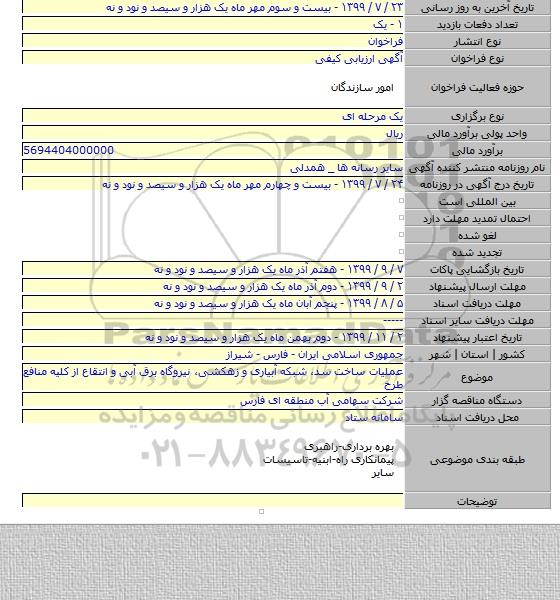 تاریخ آخرین به روز رسانی ۲۳ / ۷ / ۱۳۹۹ - بیست و سوم مهر ماه یک هزار و سیصد و نود و نه
تعداد دفعات بازدید ۱ - یک
نوع انتشار فراخوان
نوع فراخوان آگهی ارزیابی کیفی
حوزه فعالیت فراخوان امور سازندگان
نوع برگزاری یک مرحله ای
واحد پولی برآورد مالی ریال
برآورد مالی 5694404000000
نام روزنامه منتشر کننده آگهی سایر رسانه ها _ همدلی
تاریخ درج آگهی در روزنامه ۲۴ / ۷ / ۱۳۹۹ - بیست و چهارم مهر ماه یک هزار و سیصد و نود و نه
بین المللی است
احتمال تمدید مهلت دارد
لغو شده
تجدید شده
تاریخ بازگشایی پاکات ۷ / ۹ / ۱۳۹۹ - هفتم آذر ماه یک هزار و سیصد و نود و نه
مهلت ارسال پیشنهاد ۲ / ۹ / ۱۳۹۹ - دوم آذر ماه یک هزار و سیصد و نود و نه
مهلت دریافت اسناد ۵ / ۸ / ۱۳۹۹ - پنجم آبان ماه یک هزار و سیصد و نود و نه
مهلت دریافت سایر اسناد -----
تاریخ اعتبار پیشنهاد ۲ / ۱۱ / ۱۳۹۹ - دوم بهمن ماه یک هزار و سیصد و نود و نه
کشور | استان | شهر جمهوری اسلامی ایران - فارس - شیراز
موضوع عملیات ساخت سد، شبکه آبیاری و زهکشی، نیروگاه برق آبی و انتفاع از کلیه منافع
طرح
دستگاه مناقصه گزار شرکت سهامی آب منطقه ای فارس
محل دریافت اسناد سامانه ستاد
طبقه بندی موضوعی بهره برداری-راهبری
پیمانکاری راه-ابنیه-تاسیسات
سایر
توضیحات
ParsNamadData
پایگاه اطلاع رسانی مناقصه و مزایده